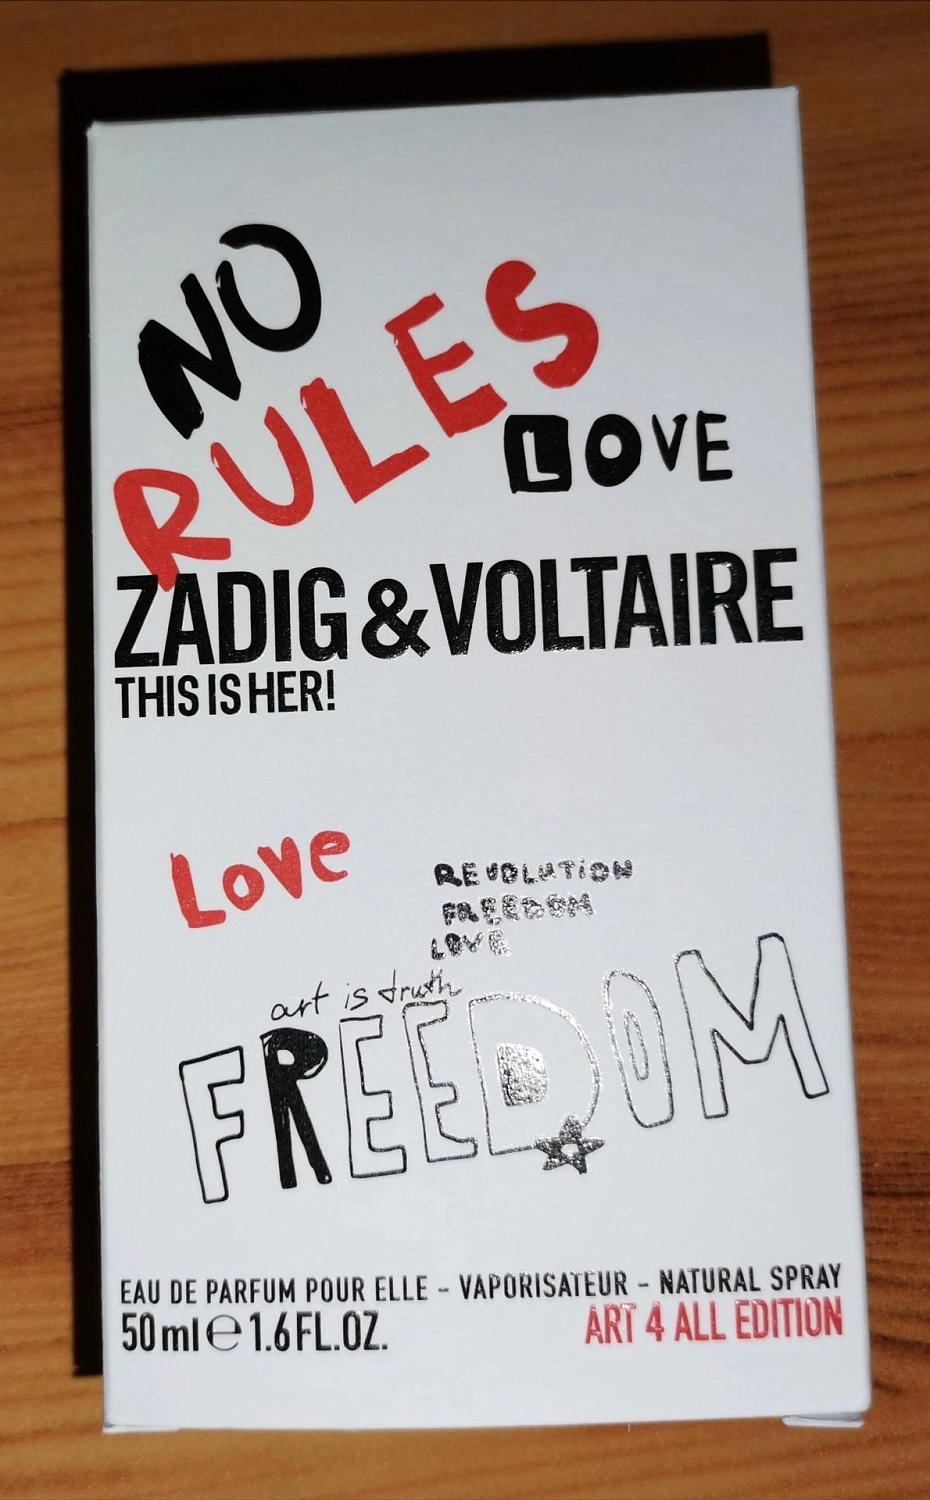 NO
RULES
LOVE
ZADIG & VOLTAIRE
THIS IS HER!
Love
REVOLUTION
FREEDOM
LOVE
art is truth
FREEDOM
EAU DE PARFUM POUR ELLE - VAPORISATEUR - NATURAL SPRAY
50 ml ℮ 1.6 FL.OZ.
ART 4 ALL EDITION